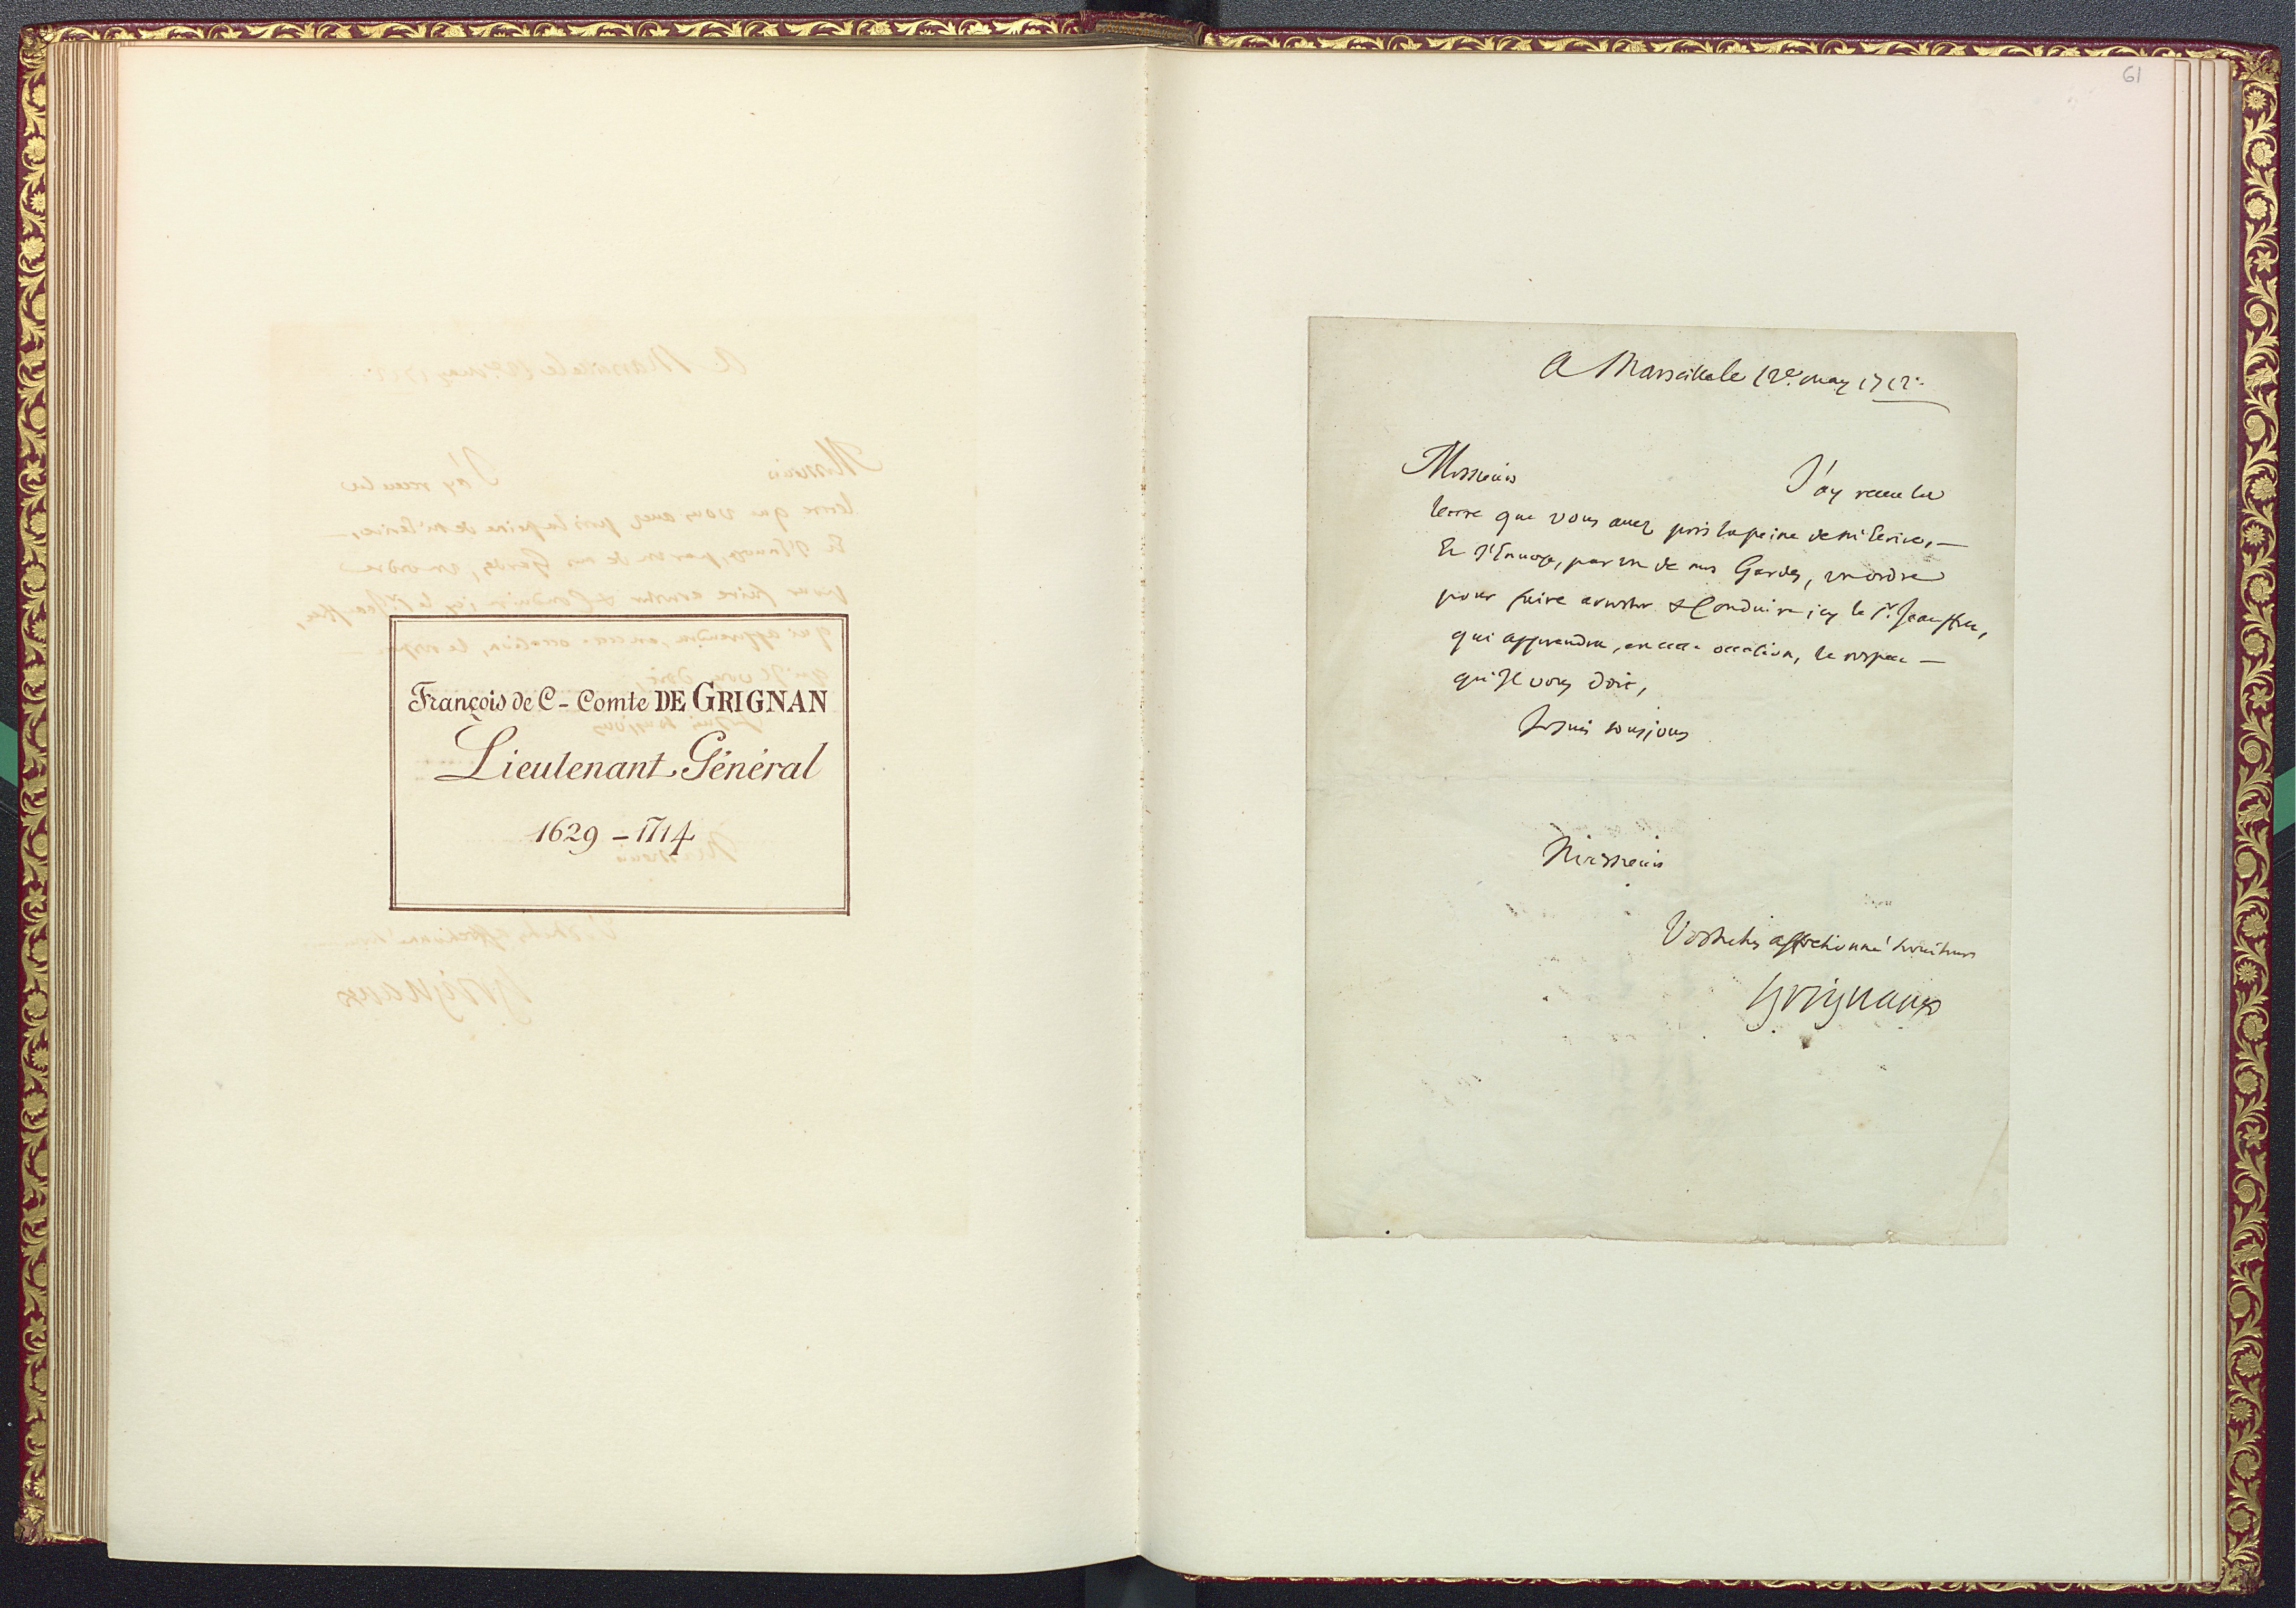 François de C - Comte DE GRIGNAN
Lieutenant Général
1629 - 1714
61
A Marseille le 12e. may 1712.
Messieurs
J'ay receu la
lettre que vous auez pris la peine de m'Ecrire, —
Et J'Enuoye, par un de mes Gardes, un ordre
pour faire arrester & Conduire icy le Sr.
qui apprendra, en cette occasion, le respect —
qu'Il vous doit,
Je suis tousjours
Messieurs
Vostre tres affectionné seruiteur
Grignan